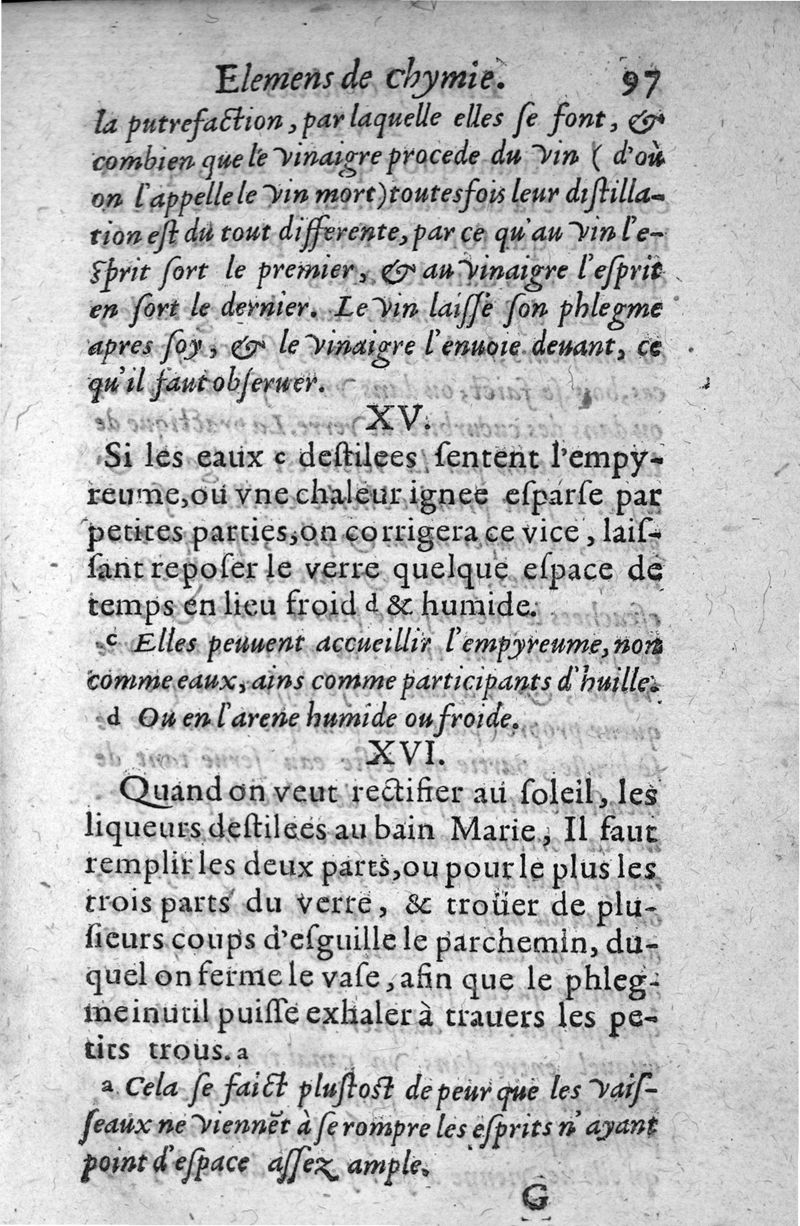 Elemens de chymie. 97
la putrefaction, par laquelle elles se font, &
combien que le vinaigre procede du vin ( d'où
on l'appelle le vin mort) toutesfois leur distilla-
tion est du tout differente, par ce qu'au vin l'e-
sprit sort le premier, & au vinaigre l'esprit
en sort le dernier. Le vin laisse son phlegme
apres soy, & le vinaigre l'enuoie deuant, ce
qu'il faut obseruer.
XV.
Si les eaux c destilees sentent l'empy-
reume, ou vne chaleur ignee esparse par
petites parties, on corrigera ce vice, lais-
sant reposer le verre quelque espace de
temps en lieu froid d & humide.
c Elles peuuent accueillir l'empyreume, non
comme eaux, ains comme participants d'huille.
d Ou en l'arene humide ou froide.
XVI.
Quand on veut rectifier au soleil, les
liqueurs destilees au bain Marie, Il faut
remplir les deux parts, ou pour le plus les
trois parts du verre, & troüer de plu-
sieurs coups d'esguille le parchemin, du-
quel on ferme le vase, afin que le phleg-
me inutil puisse exhaler à trauers les pe-
tits trous. a
a Cela se faict plustost de peur que les vais-
seaux ne viennẽt à se rompre les esprits n'ayant
point d'espace assez ample.
G